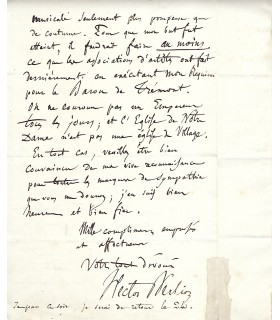 musicale seulement plus pompeuse que
de coutume. Pour que mon but fut
atteint, il faudrait faire au moins
ce que les associations d'artistes ont fait
dernièrement en exécutant mon Requiem
pour le Baron de Trémont.
On ne couronne pas un Empereur
tous les jours; et l'Eglise de Notre
Dame n'est pas une église de Village.
En tout cas, veuillez être bien
convaincu de ma vive reconnaissance
pour toutes les marques de sympathie
que vous me donnez; j'en suis bien
heureux et bien fier.
Mille compliments empressés
et affectueux
Votre tout dévoué
Hector Berlioz
je serai de retour le